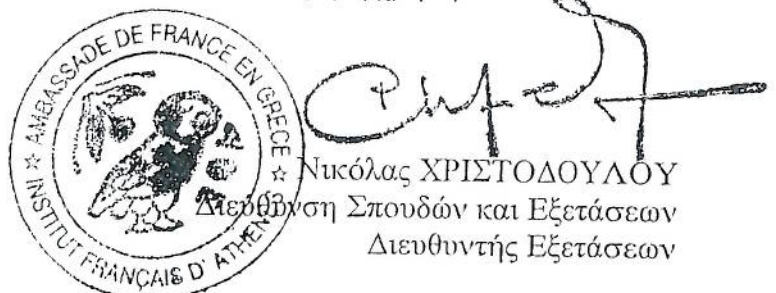 AMBASSADE DE FRANCE EN GRECE
INSTITUT FRANÇAIS D' ATHENES
Νικόλας ΧΡΙΣΤΟΔΟΥΛΟΥ
Διεύθυνση Σπουδών και Εξετάσεων
Διευθυντής Εξετάσεων